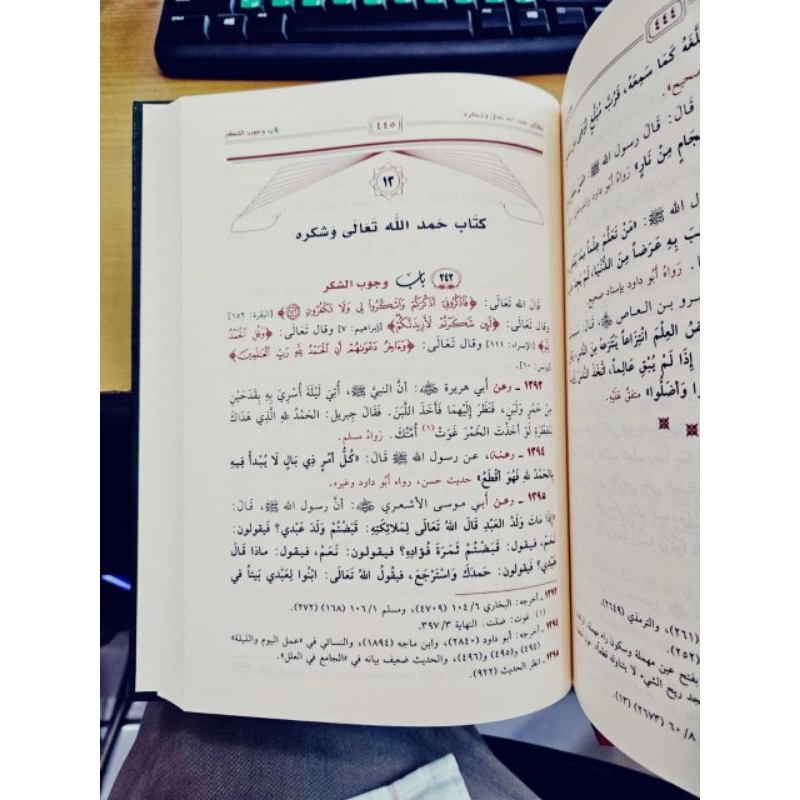 كتاب حمد الله تعالى وشكره
٤٤٥
باب وجوب الشكر
١٣
كتَاب حَمد الله تَعَالى وَشكره
٢٤٢ باب وجوب الشكر
قَالَ الله تَعَالَى: ﴿فَاذْكُرُونِي أَذْكُرْكُمْ وَاشْكُرُوا لِي وَلَا تَكْفُرُونِ﴾ [البقرة: ١٥٢]
وقال تَعَالَى: ﴿لَئِن شَكَرْتُمْ لَأَزِيدَنَّكُمْ﴾ [إبراهيم: ٧] وقال تَعَالَى: ﴿وَقُلِ الْحَمْدُ
لِلَّهِ﴾ [الإسراء: ١١١] وقال تَعَالَى: ﴿وَآخِرُ دَعْوَاهُمْ أَنِ الْحَمْدُ لِلَّهِ رَبِّ الْعَالَمِينَ﴾
[يونس: ١٠].
١٣٩٣ ـ وعن أَبي هريرة ﷺ: أنَّ النبيَّ ﷺ، أُتِيَ لَيْلَةَ أُسْرِيَ بِهِ بِقَدَحَيْنِ
مِنْ خَمْرٍ وَلَبَنٍ، فَنَظَرَ إِلَيْهِمَا فَأَخَذَ اللَّبَنَ. فَقَالَ جبريل: الحَمْدُ للهِ الَّذِي هَدَاكَ
لِلفِطْرَةِ لَوْ أخَذْتَ الخَمْرَ غَوَتْ (١) أُمَّتُكَ. رَوَاهُ مسلم.
١٣٩٤ ـ وعنه، عن رسول الله ﷺ قَالَ: «كُلُّ أمْرٍ ذِي بَالٍ لَا يُبْدأُ فِيهِ
بِالحَمْدُ للهِ فَهُوَ أقْطَعُ» حديث حسن، رواه أَبُو داود وغيره.
١٣٩٥ ـ وعن أَبي موسى الأشعري ﷺ: أنَّ رسول الله ﷺ، قَالَ:
«إِذَا مَاتَ وَلَدُ العَبْدِ قَالَ اللهُ تَعَالَى لِمَلائِكَتِهِ: قَبَضْتُمْ وَلَدَ عَبْدِي؟ فَيقولون:
نَعَمْ، فيقول: قَبَضْتُمْ ثَمَرَةَ فُؤادِهِ؟ فيقولون: نَعَمْ، فيقول: ماذا قَالَ
عَبْدِي؟ فَيقولون: حَمِدَكَ وَاسْتَرْجَعَ، فيقُولُ اللهُ تَعَالَى: ابْنُوا لِعَبْدِي بَيتاً في
١٣٩٣ ـ أخرجه: البخاري ٦/ ١٠٤ (٤٧٠٩)، ومسلم ١/ ١٠٦ (١٦٨) (٢٧٢).
(١) غوت: ضلت. النهاية ٣/ ٣٩٧.
١٣٩٤ ـ أخرجه: أبو داود (٢٨٤٠)، وابن ماجه (١٨٩٤)، والنسائي في «عمل اليوم والليلة»
(٤٩٤) و(٤٩٥) و(٤٩٦)، والحديث ضعيف بيانه في «الجامع في العلل».
١٣٩٥ ـ انظر الحديث (٩٢٢).
٤٤٤
كَمَا سَمِعَهُ، فَرُبَّ مُبَلَّغٍ
صحيح».
قَالَ: قَالَ رسول الله ﷺ:
مِنْ نَارٍ» رَوَاهُ أَبُو داود
الله ﷺ: «مَنْ تَعَلَّمَ عِلْماً
بِهِ عَرَضاً مِنَ الدُّنْيَا
رَوَاهُ أَبُو داود بإسناد صحيح.
بن العاص
العِلْمَ انْتِزَاعاً يَنْتَزعهُ مِنَ
إِذَا لَمْ يُبْقِ عَالِماً، اتَّخَذَ النَّاسُ
وَأَضَلُّوا» متفقٌ عَلَيْهِ.
(٢٦١)، والترمذي (٢٦٤٩).
(٢٥٢).
بفتح عين مهملة وسكون راء مهملة
٨/ ٦٠ (٢٦٧٣) (١٣).